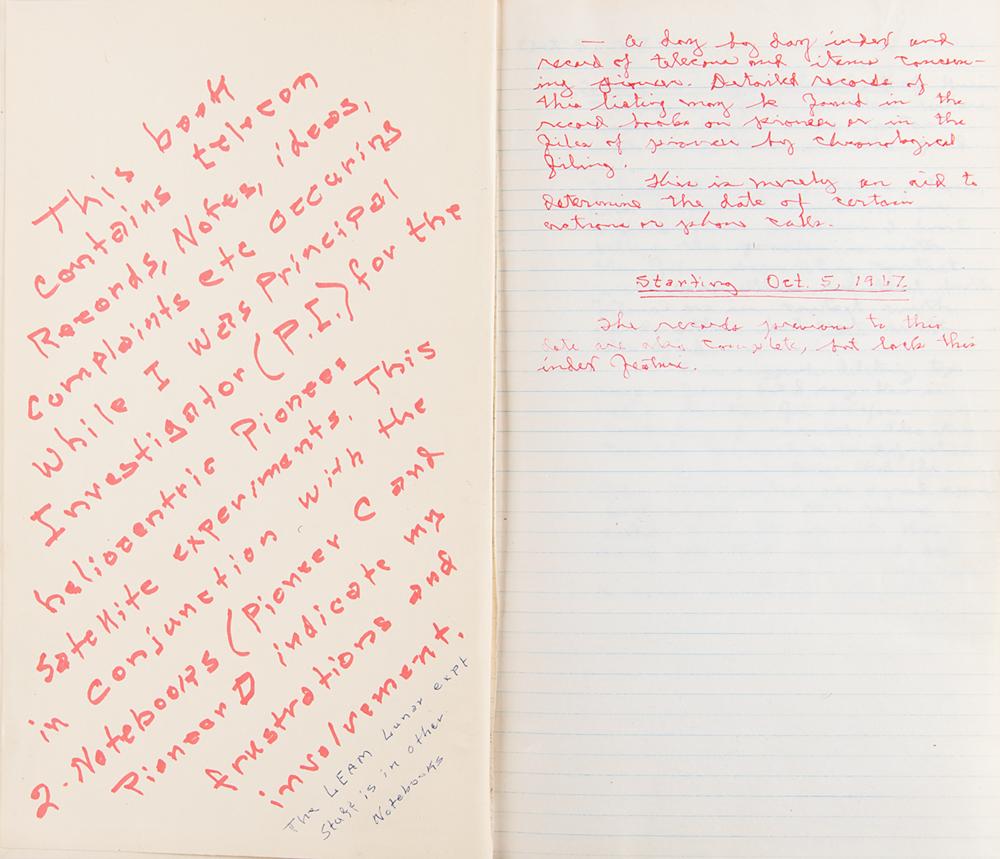 This book
contains telecon
Records, Notes, ideas,
Complaints etc occuring
while I was Principal
Investigator (P.I.) for the
heliocentric Pioneer
satellite experiments. This
in Conjunction with the
2. Notebooks (Pioneer C and
Pioneer D indicate my
frustrations and
involvement.
The LEAM Lunar expt
Stuff is in other
Notebooks
— A day by day index and
record of telecons and items concern-
ing pioneer. Detailed records of
this listing may be found in the
record books on pioneer or in the
files of pioneer by chronological
filing.
This is merely an aid to
determine the date of certain
actions or phone calls.
Starting Oct. 5, 1967.
The records previous to this
date are also complete, but lack this
index feature.